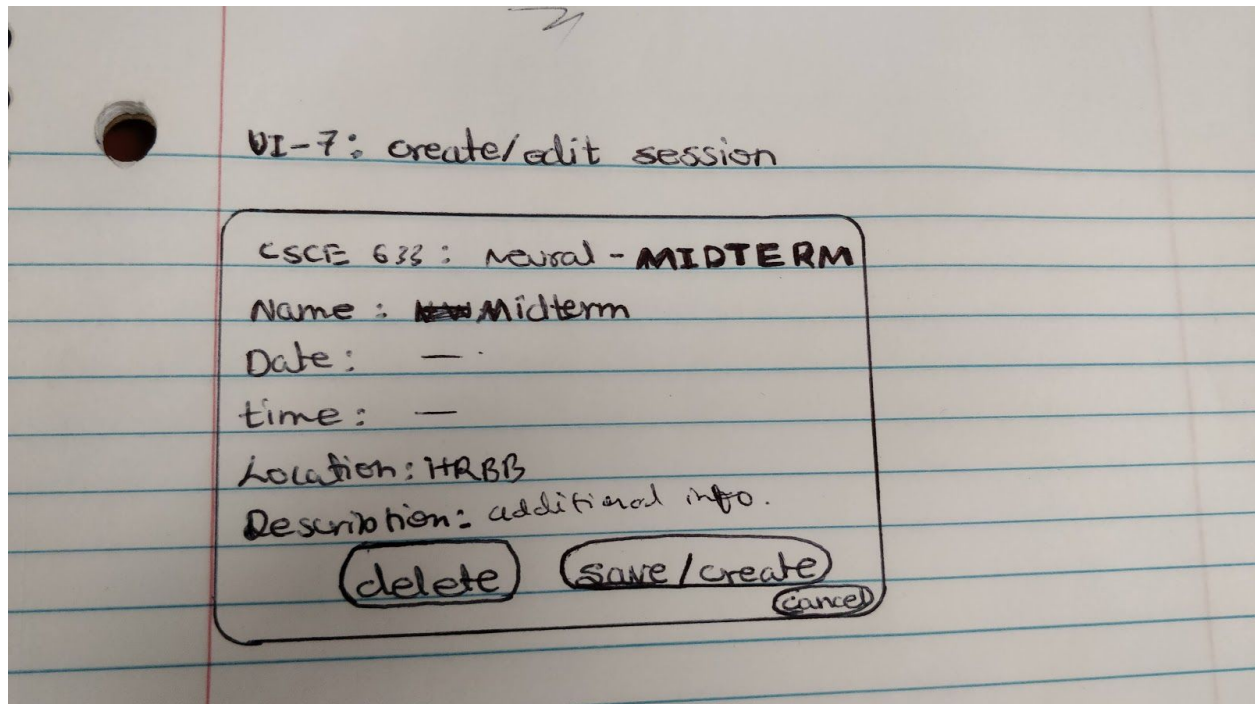 UI-7: create/edit session
CSCE 633: Neural - MIDTERM
Name: Midterm
Date: —
time: —
Location: HRBB
Description: additional info.
delete save/create
cancel